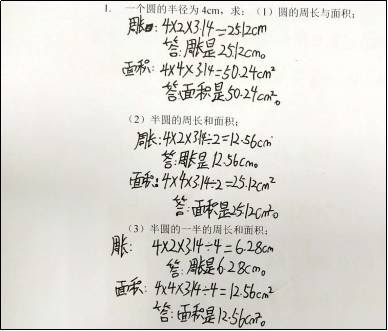 1. 一个圆的半径为4cm，求：（1）圆的周长与面积；
周长：4×2×3.14=25.12cm
答：周长是25.12cm。
面积：4×4×3.14=50.24cm²
答：面积是50.24cm²。
（2）半圆的周长和面积；
周长：4×2×3.14÷2=12.56cm
答：周长是12.56cm。
面积：4×4×3.14÷2=25.12cm²
答：面积是25.12cm²。
（3）半圆的一半的周长和面积；
周长：4×2×3.14÷4=6.28cm
答：周长是6.28cm。
面积：4×4×3.14÷4=12.56cm²
答：面积是12.56cm²。